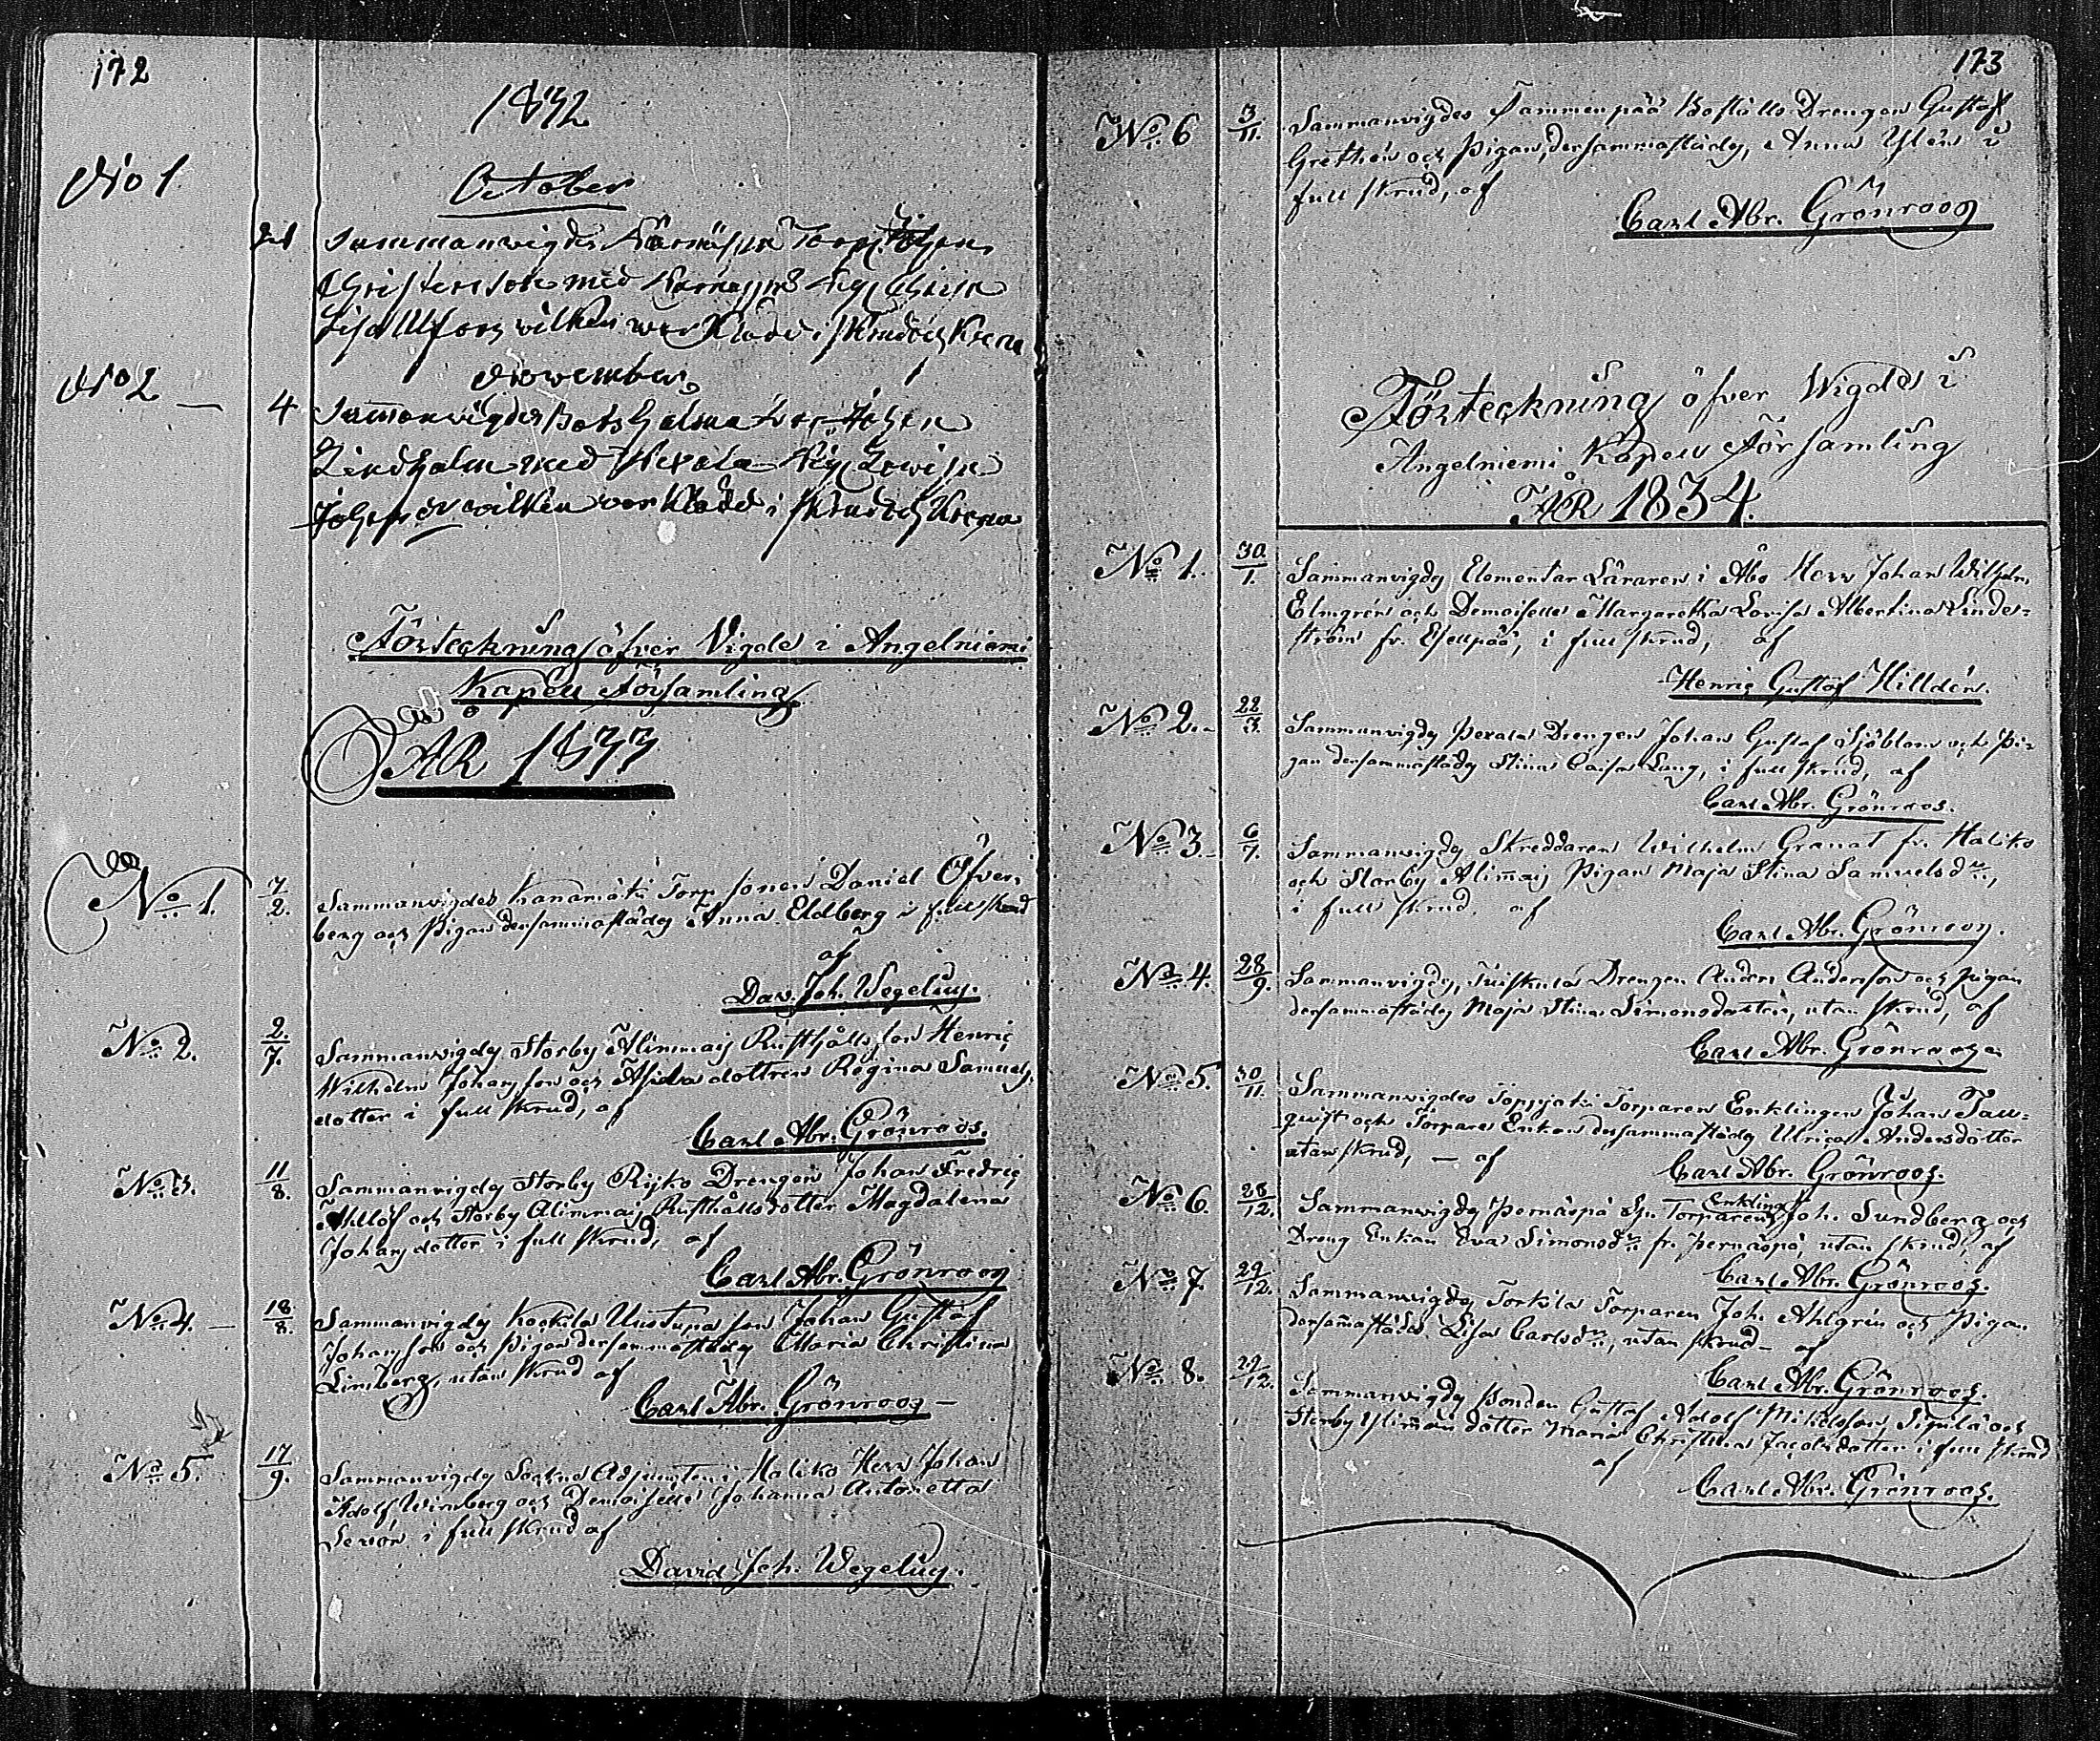 172
1832
No 1
October
Sammanvigdes Torp. Johan
Christersson med Pig. Chaisa
Lisa Ulfors wilken war Klädd i skrud och Krona
November
No 2 — 4 Sammanvigdes Johan
Lindholm med Pig. Lowisa
wilken war klädd i skrud och Krona
Förteckning öfver Vigde i Angelniemi
Kapell Församling
ÅR 1833
No 1. 7/2. Sammanvigdes Kanamäki Torp sonen Daniel Öfver-
berg och Pigan dersammastädes Anna Eldberg i full skrud
af
Dav. Joh. Wegelius.
No 2. 2/7. Sammanvigdes Storby Alimmaij Rusthålls son Henric
Wilhelm Johansson och dottren Regina Samuels
dotter i full skrud, af
Carl Abr. Grönroos.
No 3. 11/8. Sammanvigdes Storby Rijko Drengen Johan Fredric
Ahllöf och Storby Alimmaij Rusthålls dotter Magdalena
Johans dotter i full skrud, af
Carl Abr. Grönroos
No 4. — 18/8. Sammanvigdes Kokkila Uustupa son Johan Gustaf
Johansson och Pigan dersammastädes Maria Christina
Limberg, utan skrud af
Carl Abr. Grönroos —
No 5. 17/9. Sammanvigdes Sockne Adjuncten i Haliko Herr Johan
Adolf Winberg och Demoiselle Johanna Antonetta
i full skrud af
David Joh. Wegelius.
173
No 6 3/11. Sammanvigdes Tammenpää Boställs Drengen Gustaf
Grethén och Pigan, dersammastädes, Anna Ylén i
full skrud, af
Carl Abr. Grönroos
Förteckning öfver Wigde i
Angelniemi Kapell Församling
ÅR 1834.
No 1. 30/1. Sammanvigdes Elementar Läraren i Åbo Herr Johan Wilhelm
Elmgrén och Demoiselle Margaretha Lovisa Albertina Linde-
ström fr. Essellpää, i full skrud, af
Henric Gustaf Hilldén.
No 2. 22/3 Sammanvigdes Peksala Drengen Johan Gustaf Sjöblom och Pi-
gan dersammastädes Stina Caisa Lang, i full skrud, af
Carl Abr. Grönroos.
No 3. 6/7. Sammanvigdes Skreddaren Wilhelm Granat fr. Haliko
och Storby Alimaij Pigan Maja Stina Samuelsdr.,
i full skrud af
Carl Abr. Grönroos.
No 4. 28/9. Sammanvigdes, Tuiskula Drengen Anders Andersson och Pigan
dersammastädes Maja Stina Simonsdotter, utan skrud, af
Carl Abr. Grönroos.
No 5. 30/11. Sammanvigdes Töppjoki Torparen Enklingen Johan Tau-
quist och Torpare Enkan dersammastädes Ulrica Andersdotter
utan skrud, — af
Carl Abr. Grönroos.
No 6. 28/12. Sammanvigdes Pernäspä Torparen Enkling Joh. Sundberg och
Dreng Enkan Eva Simonsdr. fr. Pernäspä, utan skrud, af
Carl Abr. Grönroos.
No 7. 29/12. Sammanvigdes Torkila Torparen Joh. Ahlgrén och Pigan
dersamastädes Lisa Carlsdr., utan skrud — af
Carl Abr. Grönroos.
No 8. 29/12. Sammanvigdes Bonden Gustaf Adolf Mikelsson Sipilä och
Storby Ylimäii dotter Maria Christina Jacobsdotter i full skrud
af
Carl Abr. Grönroos.